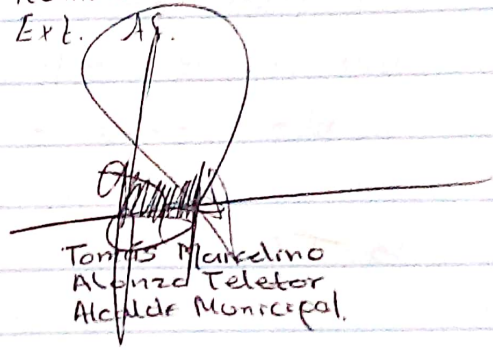 Ext. AG.
Tomás Marcelino
Alonzo Teletor
Alcalde Municipal.